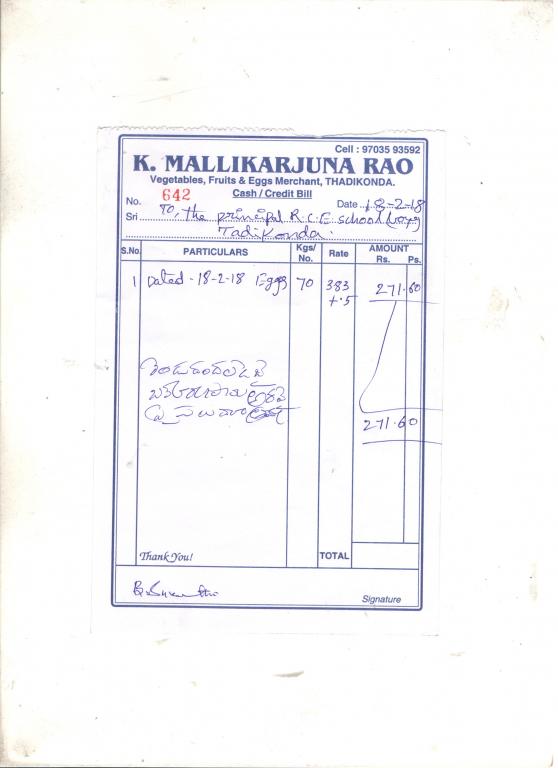 Cell : 97035 93592
K. MALLIKARJUNA RAO
Vegetables, Fruits & Eggs Merchant, THADIKONDA.
Cash / Credit Bill
No. 642
Date 18-2-18
Sri To, the principal R.C.E school (Boys)
Tadikonda.
S.No. PARTICULARS Kgs/ No. Rate AMOUNT Rs. Ps.
1 Dated - 18-2-18 Eggs 70 383 271.60
+.5
271.60
Thank You! TOTAL
Signature